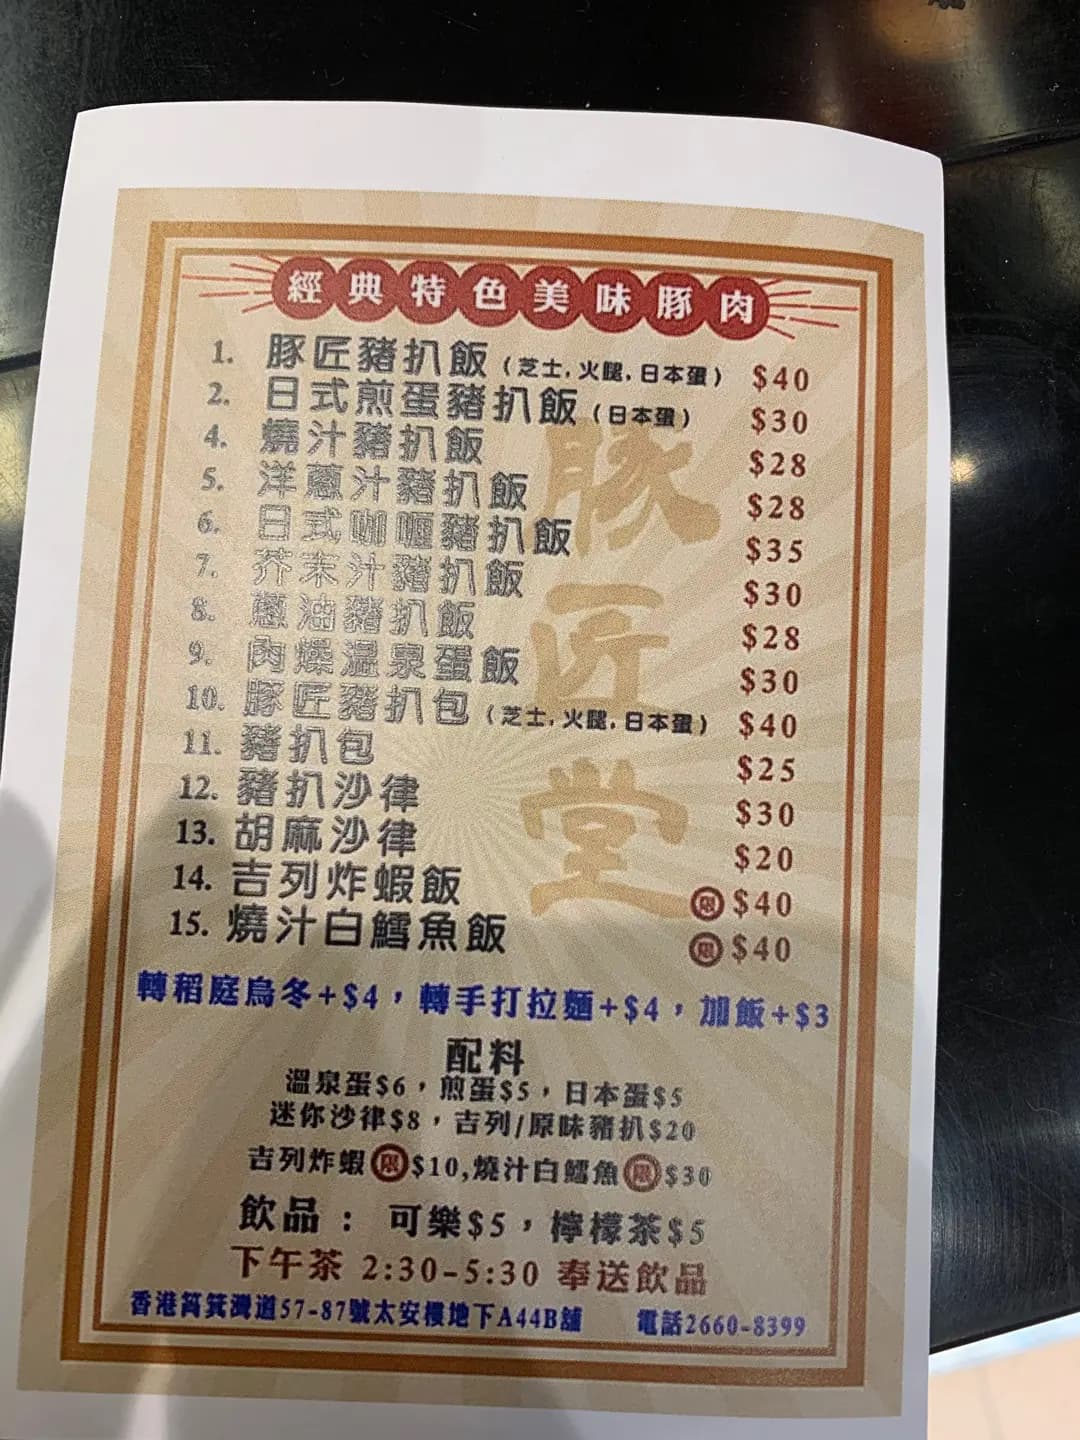 經典特色美味豚肉
1. 豚匠豬扒飯 (芝士,火腿,日本蛋) $40
2. 日式煎蛋豬扒飯 (日本蛋) $30
4. 燒汁豬扒飯 $28
5. 洋蔥汁豬扒飯 $28
6. 日式咖喱豬扒飯 $35
7. 芥末汁豬扒飯 $30
8. 蔥油豬扒飯 $28
9. 肉燥溫泉蛋飯 $30
10. 豚匠豬扒包 (芝士,火腿,日本蛋) $40
11. 豬扒包 $25
12. 豬扒沙律 $30
13. 胡麻沙律 $20
14. 吉列炸蝦飯 限 $40
15. 燒汁白鱈魚飯 限 $40
豚匠堂
轉稻庭烏冬+$4，轉手打拉麵+$4，加飯+$3
配料
溫泉蛋$6，煎蛋$5，日本蛋$5
迷你沙律$8，吉列/原味豬扒$20
吉列炸蝦限$10,燒汁白鱈魚限$30
飲品： 可樂$5，檸檬茶$5
下午茶 2:30-5:30 奉送飲品
香港筲箕灣道57-87號太安樓地下A44B舖 電話2660-8399